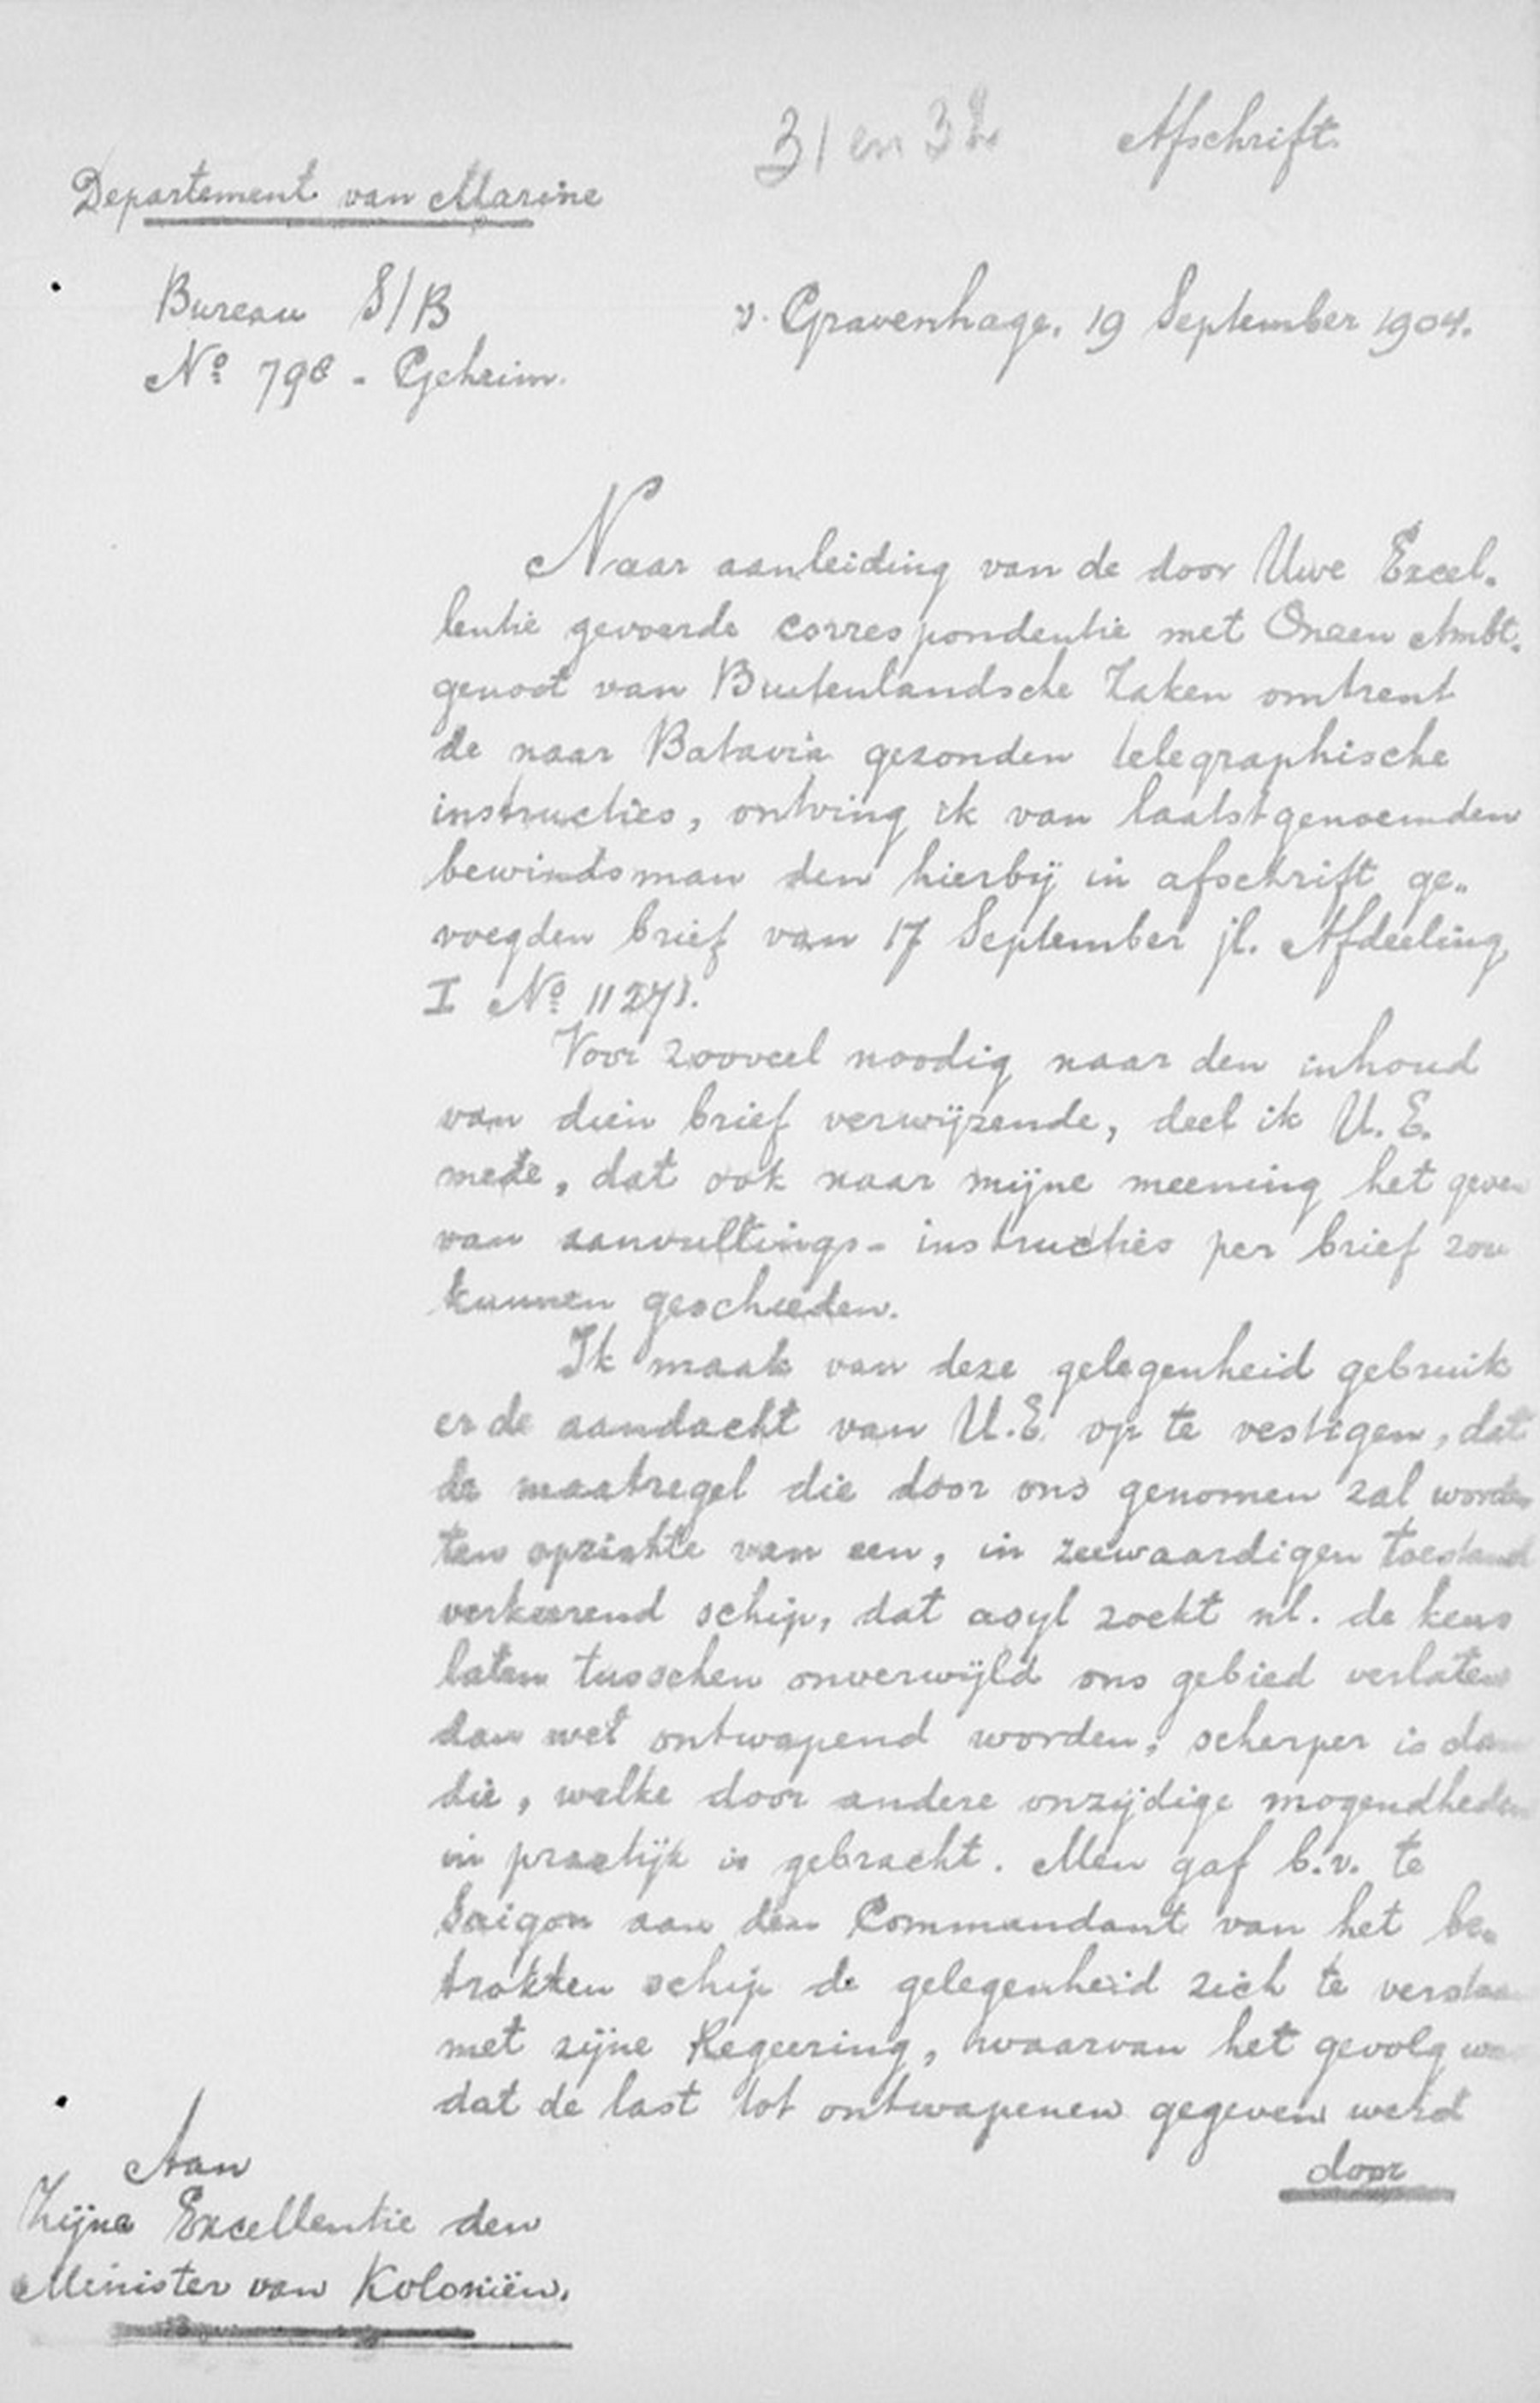 31 en 32 Afschrift.
Departement van Marine
Bureau S/B
's Gravenhage, 19 September 1904.
Nº 798 - Geheim.
Naar aanleiding van de door Uwe Excel-
lentie gevoerde correspondentie met Onzen Ambt-
genoot van Buitenlandsche Zaken omtrent
de naar Batavia gezonden telegraphische
instructies, ontving ik van laatstgenoemden
bewindsman den hierbij in afschrift ge-
voegden brief van 17 September jl. Afdeeling
I Nº
Voor zooveel noodig naar den inhoud
van dien brief verwijzende, deel ik U.E.
mede, dat ook naar mijne meening het geven
van aanvullings- instructies per brief zou
kunnen geschieden.
Ik maak van deze gelegenheid gebruik
er de aandacht van U.E. op te vestigen, dat
de maatregel die door ons genomen zal worden
ten opzichte van een, in zeewaardigen toestand
verkeerend schip, dat asyl zoekt nl. de keus
laten tusschen onverwijld ons gebied verlaten
dan wel ontwapend worden, scherper is dan
die, welke door andere onzijdige mogendheden
in practijk is gebracht. Men gaf b.v. te
Saigon aan den Commandant van het be-
trokken schip de gelegenheid zich te verstaan
met zijne Regeering, waarvan het gevolg was
dat de last tot ontwapenen gegeven werd
door
Aan
Zijne Excellentie den
Minister van Koloniën.